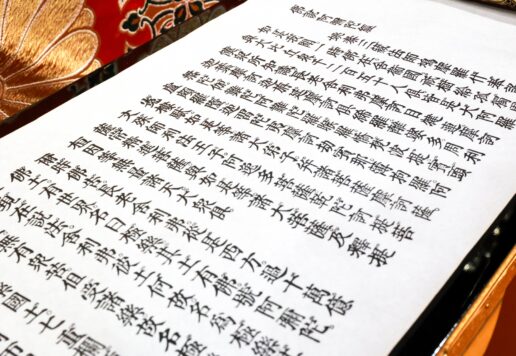 佛說阿彌陀經
姚秦三藏法師鳩摩羅什奉
如是我聞一時佛在舍衛國祇樹給孤獨園
與大比丘衆千二百五十人俱皆是大阿羅
漢衆所知識長老舍利弗摩訶目犍連摩訶
迦葉摩訶迦旃延摩訶俱絺羅離婆多周利
槃陀伽難陀阿難陀羅睺羅憍梵波提賓頭
盧頗羅墮迦留陀夷摩訶劫賓那薄拘羅阿
㝹樓駄如是等諸大弟子并諸菩薩摩訶薩
文殊師利法王子阿逸多菩薩乾陀訶提菩
薩常精進菩薩與如是等諸大菩薩及釋提
桓因等無量諸天大衆俱
爾時佛告長老舍利弗從是西方過十萬億
佛土有世界名曰極樂其土有佛號阿彌陀
在説法舍利弗彼土何故名爲極樂
無有衆苦但受諸樂故名極
樂國土七重欄